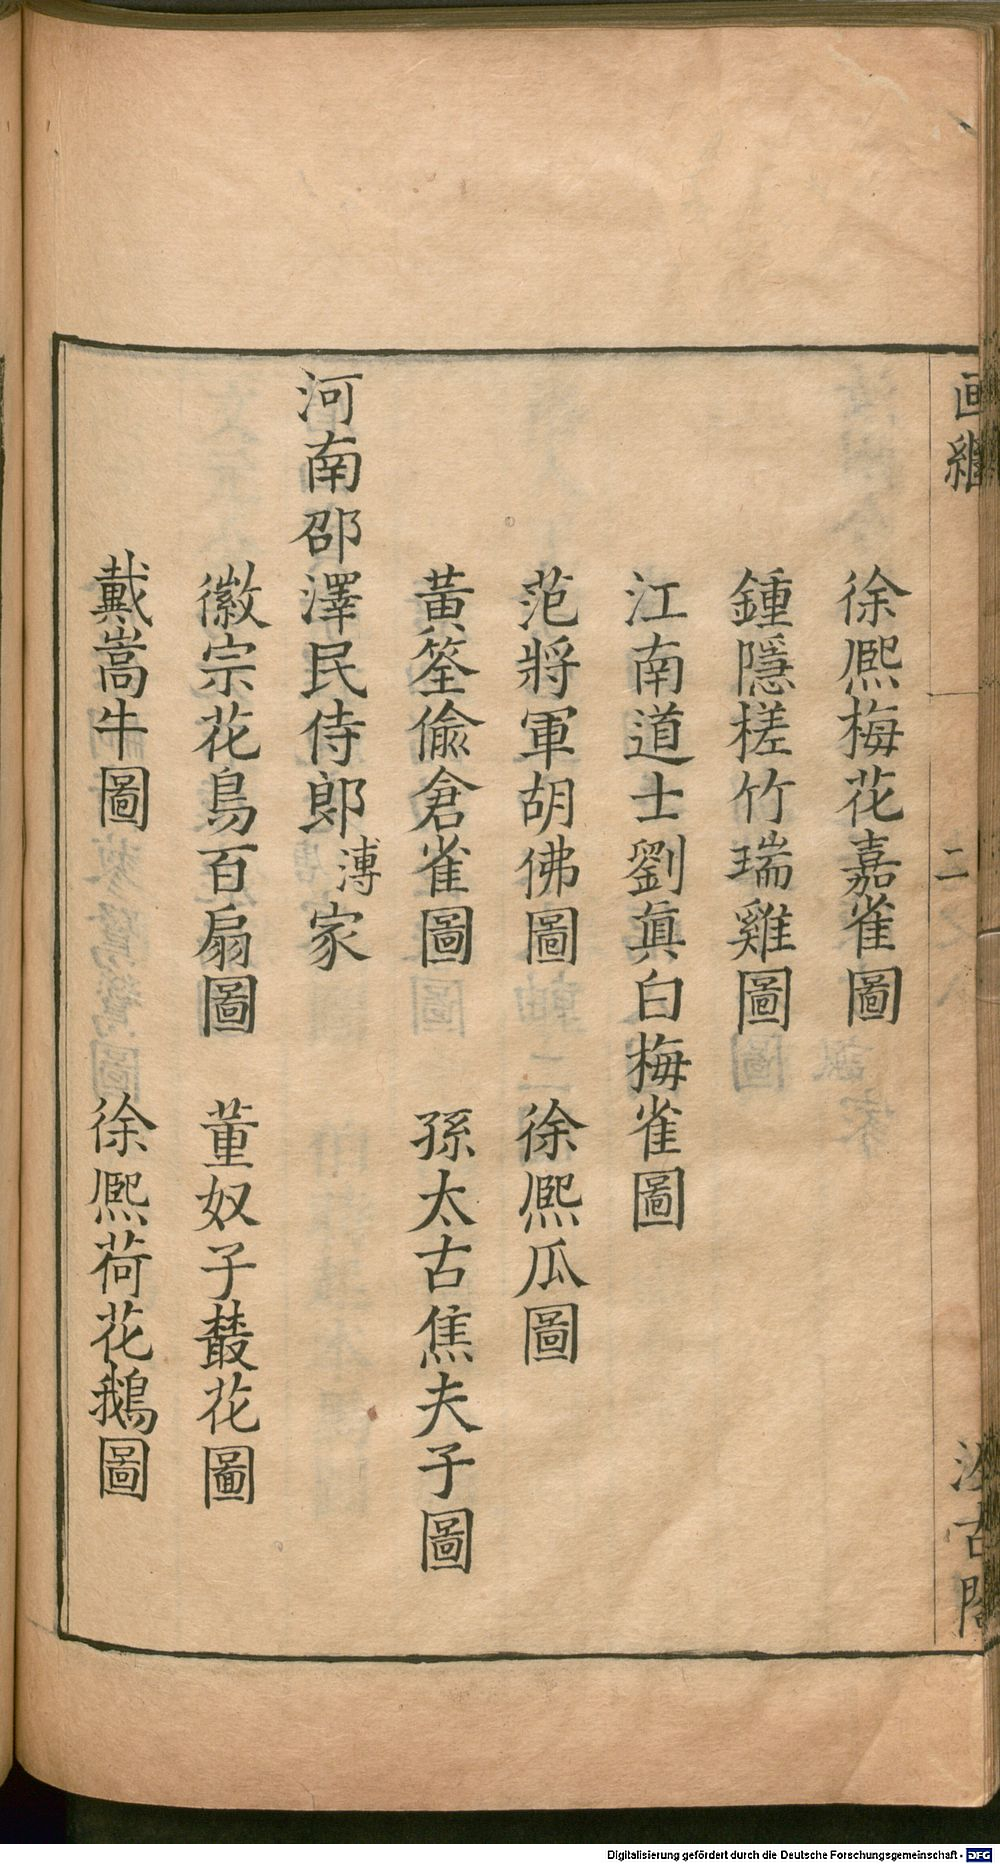 画繼 二 汲古閣
徐熈梅花嘉雀圖
鍾隱槎竹瑞雞圖
江南道士劉眞白梅雀圖
范將軍胡佛圖 徐熈瓜圖
黃筌偷倉雀圖 孫太古焦夫子圖
河南邵澤民侍郎溥家
徽宗花鳥百扇圖 董奴子叢花圖
戴嵩牛圖 徐熈荷花鵝圖
Digitalisierung gefördert durch die Deutsche Forschungsgemeinschaft - DFG